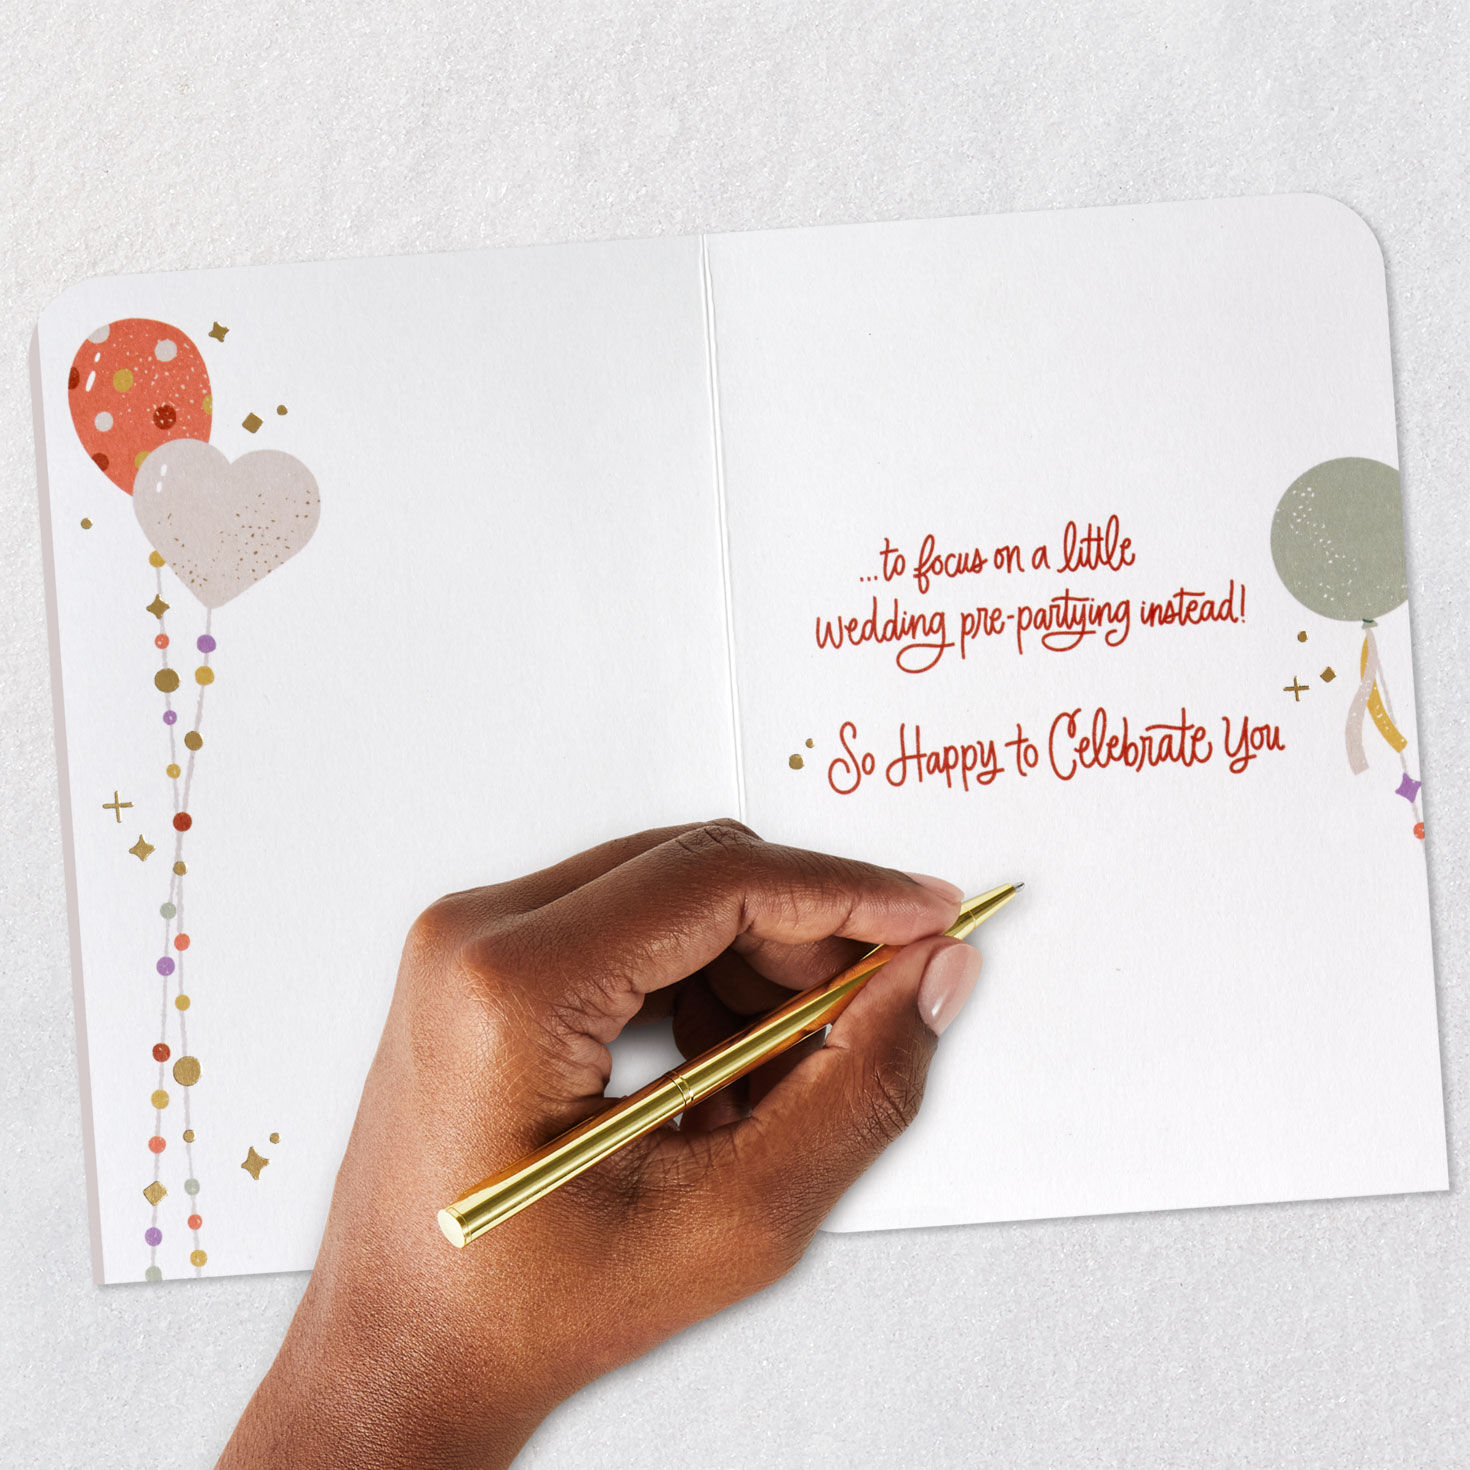 ...to focus on a little
wedding pre-partying instead!
So Happy to Celebrate You